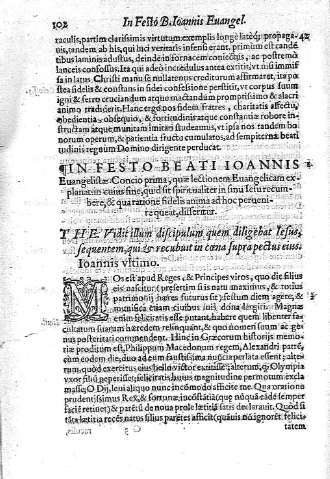 102 In Festo B. Ioannis Euangel.
raculis, partim clarissimis virtutum exemplis longè latéq; propaga-
uit, tandem ab his, qui luci veritatis infensi erant, primum est canden
tibus laminis adustus, deinde in fornacem coniectus, ac postremò
lanceis confossus.
sa in latus. Christi manu se nullatenus crediturum affirmarat, ita po
stea fidelis & constans in fidei confessione perstitit, vt corpus suum
igni & ferro cruciandum atque mactandum promptissimo & alacri
animo tradiderit. Hanc ergo nos fidem fratres, charitatis affectu,
obedientia obsequio, & fortitudinis atque constantiæ robore in-
structam atque munitam imitari studeamus, vt ipsa nos tandem bo-
norum operum, & patientiæ fructu cumulatos, ad sempiterna beati
tudinis regnum Domino dirigente perducat.
¶IN FESTO BEATI IOANNIS
Euangelistæ Concio prima, quæ lectionem Euangelicam ex-
planat: in cuius fine, quid sit spiritualiter in sinu Iesu recum-
bere, & qua ratione fidelis anima ad hoc perueni-
re queat, disseritur.
THE. Vidit illum discipulum quem diligebat Iesus,
sequentem, qui & recubuit in cœna supra pectus eius.
Ioannis vltimo.
MOs est apud Reges, & Principes viros, quo die filius
eis nascitur (præsertim si is natu maximus, & totius
patrimonij hæres futurus sit) festum diem agere, &
munifica etiam ciuibus suis dona largiri. Magnæ
enim felicitatis esse putant, habere quem libenter fa-
cultatum suarum hæredem relinquant, & quo nomen suum ac ge-
nus posteritati commendent. Hinc in Græcorum historijs memo-
riæ proditum est, Philippum Macedonum regem, Alexandri patrẽ,
eum eodem die, duo ad eum faustissima nuncia perlata essent; alte-
rum, quòd exercitus eius bello victor extitisset; alterum, q; Olympia
vxor filiũ peperisset; felicitatis huius magnitudine permotum excla
masse, O Dij, leni aliquo nunc incõmodo afficite me. Qua oratione
prudentissimus Rex, & fortunæ incõstãtiã (quæ nũquã eãdẽ semper
faciẽ retinet) & partẽ de noua prole lætitiã satis declarauit. Quòd si
tãta lætitia recẽs natus filius parẽtes afficit (quãuis nõ ignorẽt felici-
tatem